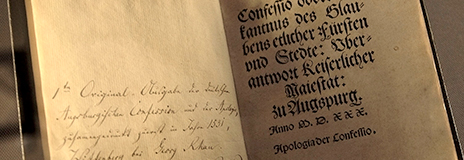 1te Original-Ausgabe der deutschen
Augsburgischen Confession und der Apologie,
zusammengedruckt zuerst im Jahre 1531,
Wittenberg bei Georg Rhau
Confessio odder
kantnus des Glau-
bens etlicher Fürsten
und Stedte: Uber-
antwort Keiserlicher
Maiestat:
zu Augspurg.
Anno M. D. XXX.
Apologia der Confessio.